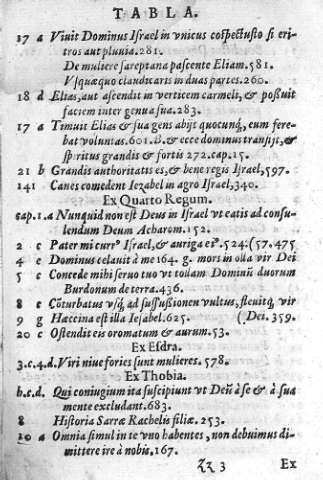 TABLA.
17 a Viuit Dominus Israel in vnicus cōspectusto si eri-
tros aut pluuia.281.
De muliere sareptana pascente Eliam.581.
Vsquæquo claudicatis in duas partes.260.
18 d Elias, aut ascendit in verticem carmeli, & posuit
faciem inter genua sua.283.
17 a Timuit Elias & sua gens abijt quocunq, eum fere-
bat voluntas.601.D.& ecce dominus transijt, &
spiritus grandis & fortis 272.cap.15.
21 b Grandis authoritatis es, & bene regis Israel,597.
141 Canes comedent Iezabel in agro Israel,340.
Ex Quarto Regum.
cap.1.a Nunquid non est Deus in Israel vt eatis ad consu-
lendum Deum Acharom.152.
2 c Pater mi currº Israel, & auriga eiº.524.(57.475
4 e Dominus celauit à me 164. g. mors in olla vir Dei
5 c Concede mihi seruo tuo vt tollam Dominū duorum
Burdonum de terra.436.
8 c Cōturbatus vsq́ ad suffusionem vultus, fleuitq́, vir
9 g Hæccina est illa Iezabel.625. (Dei.359.
20 c Ostendit eis oromatum & aurum.53.
Ex Esdra.
3.c.4.d. Viri niue fories sunt mulieres.578.
Ex Thobia.
b.c.d. Qui coniugium ita suscipiunt vt Deū à se & à sua
mente excludant.683.
8 Historia Sarræ Rachelis filiæ.253.
10 a Omnia simul in te vno habentes, non debuimus di-
mittere ire à nobis,167.
3 Ex